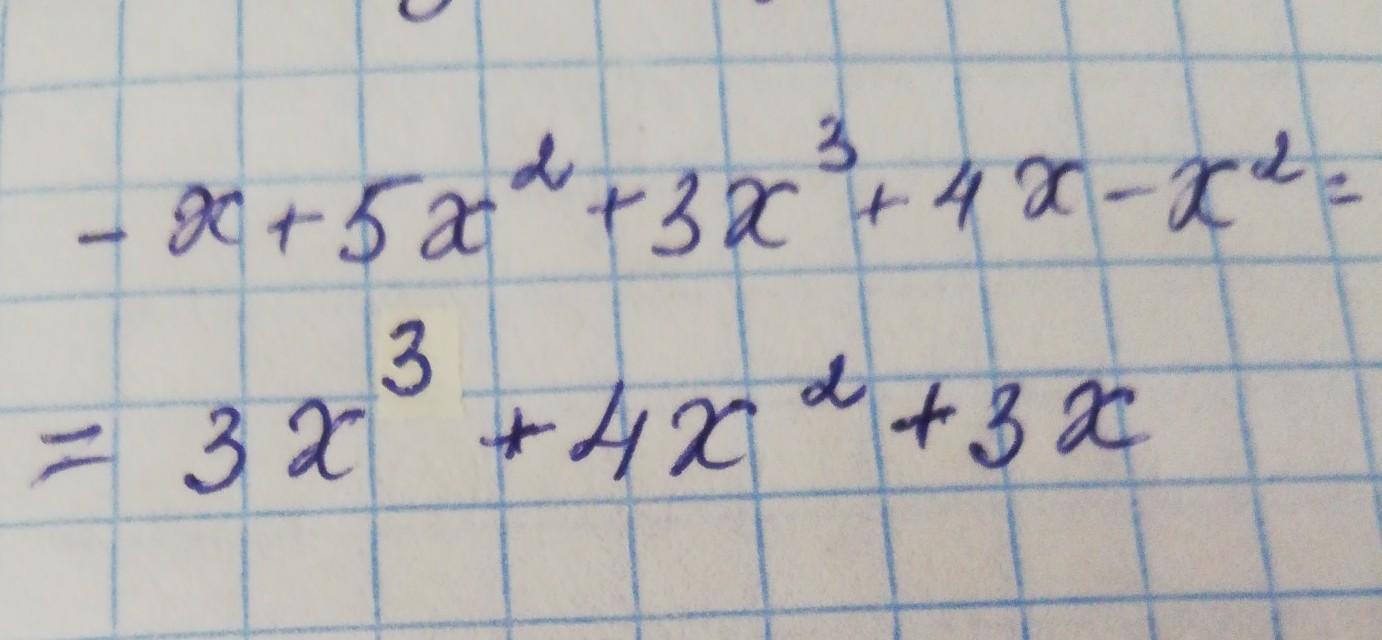 - x + 5x² + 3x³ + 4x - x² =
= 3x³ + 4x² + 3x